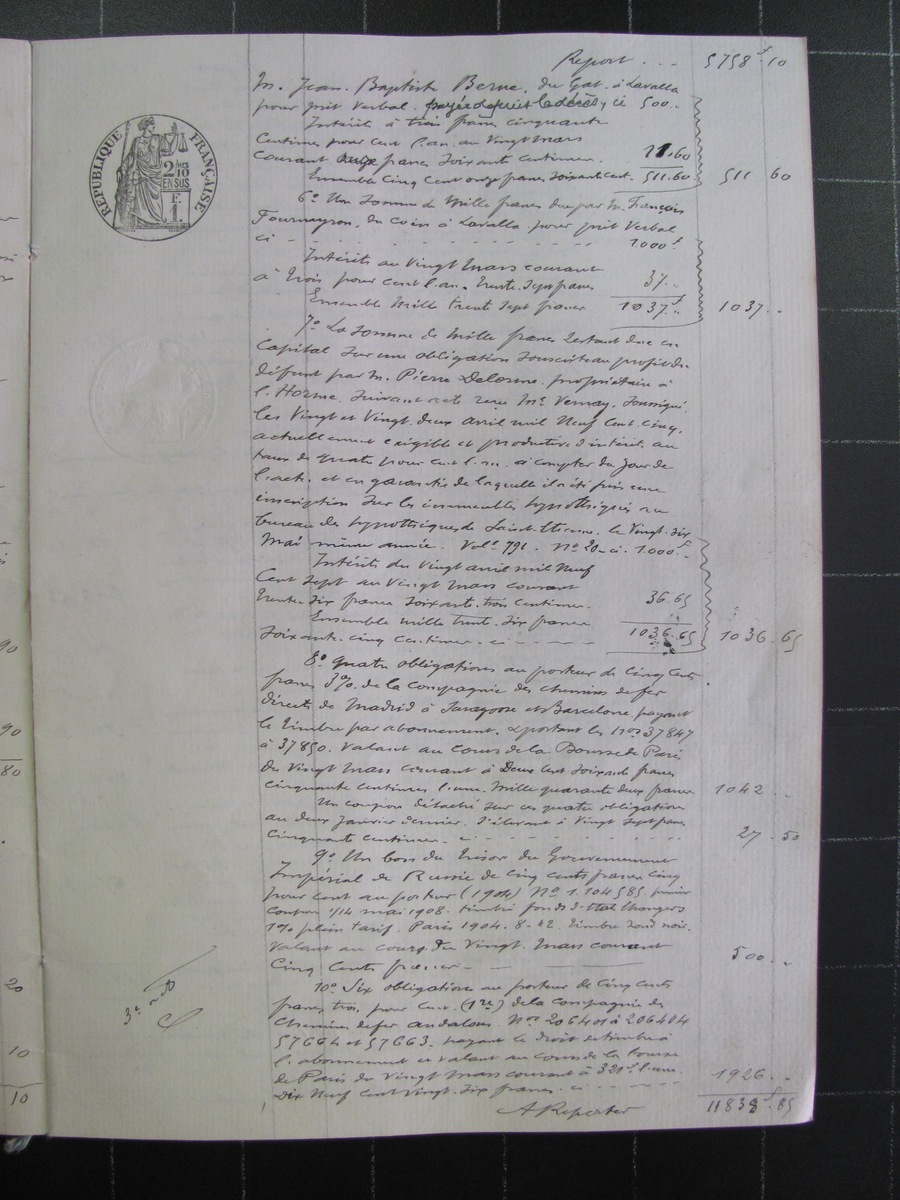 Report . . . 5758 f 10
M. Jean Baptiste Berne, du Gat. à Lavalla
pour prêt verbal. payée depuis le décès, ci 500..
Intérêts à trois francs cinquante
centimes pour cent l'an au vingt mars
courant onze francs soixante centimes. 11.60
Ensemble cinq cent onze francs soixante cent. 511.60 511 60
6° Une somme de mille francs due par M. François
Fourneyron, du coin à Lavalla pour prêt verbal
ci - - - - - - - - - 1.000 f
Intérêts au vingt mars courant
à trois pour cent l'an. trente sept francs 37..
Ensemble mille trente sept francs 1037 f.. 1037 ..
7° La somme de mille francs restant due en
capital sur une obligation souscrite au profit du
défunt par M. Pierre Delorme, propriétaire à
l'Horme, suivant acte reçu Me Vernay, soussigné
les vingt et vingt deux avril mil neuf cent cinq,
actuellement exigible et productive d'intérêts au
taux de quatre pour cent l'an à compter du jour de
l'acte, et en garantie de laquelle il a été pris une
inscription sur les immeubles hypothéqués au
bureau des hypothèques de Saint-Etienne, le vingt six
mai même année. Vol. 791. N° 20 - ci. 1.000 f..
Intérêts du vingt avril mil neuf
cent sept au vingt mars courant
trente six francs soixante trois centimes. 36.65
Ensemble mille trente six francs
soixante cinq centimes. ci - - - - 1036.65 1036.65
8° Quatre obligations au porteur de cinq cents
francs 3% de la compagnie des chemins de fer
directs de Madrid à Saragosse et Barcelone, payant
le timbre par abonnement, & portant les Nos 37847
à 37850. valant au cours de la Bourse de Paris
du vingt mars courant à Deux cent soixante francs
cinquante centimes l'une. Mille quarante deux francs 1042 ..
Un coupon détaché sur ces quatre obligations
au deux janvier dernier, s'élevant à vingt sept francs
cinquante centimes - ci - - - - 27.50
9° Un bon du trésor du Gouvernement
Impérial de Russie de cinq cents francs cinq
pour cent au porteur (1904) N° 1.104585. premier
coupon 1/14 mai 1908. timbré fonds d'Etat étrangers
1% plein tarif. Paris 1904. 8-42. timbre rond noir.
valant au cours du vingt mars courant
cinq cents francs - - - 500 ..
10° Six obligations au porteur de cinq cents
francs trois pour cent (1re) de la compagnie des
chemins de fer andalous. Nos 206401 à 206404
57664 et 57663. payant le droit de timbre à
l'abonnement et valant au cours de la bourse
de Paris du vingt mars courant à 321 f l'une.
Dix neuf cent vingt six francs. ci - - - - 1926 ..
A Reporter 11838 f.85
REPUBLIQUE FRANÇAISE
2/10
EN SUS
F.
1.
90
90
80
20
10
10